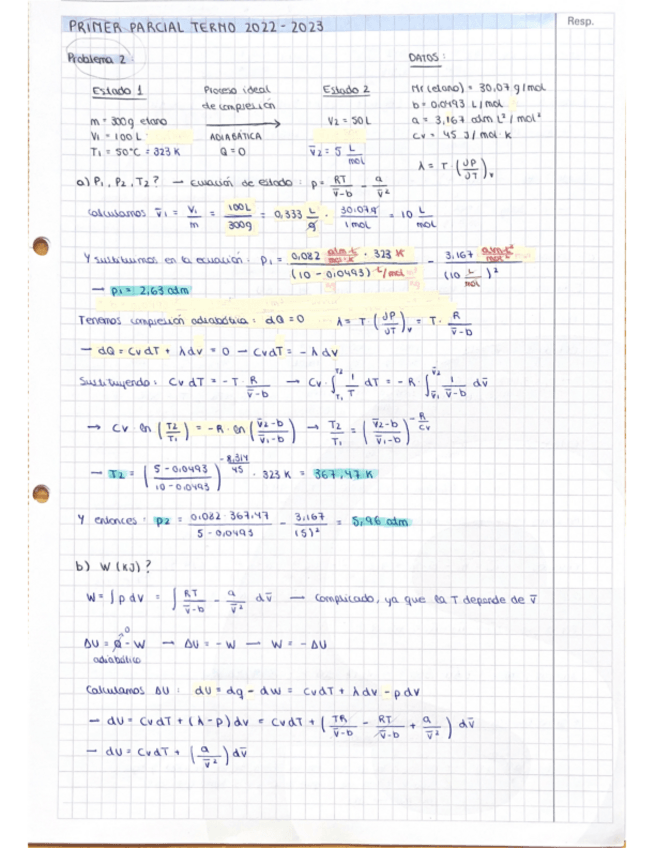 PRIMER PARCIAL TERMO 2022-2023
Resp.
Problema 2:
DATOS:
Estado 1 Proceso ideal de compresión Estado 2
Mr(etano) = 30,07 g/mol
b = 0,0493 L/mol
m = 300g etano
V2 = 50L
a = 3,167 atm L²/mol²
V1 = 100 L ADIABÁTICA
Cv = 45 J/mol·K
T1 = 50°C = 323 K Q = 0 v̄2 = 5 L/mol
λ = T·(∂P/∂T)v
a) P1, P2, T2? → Ecuación de estado: p = RT/(v̄-b) - a/v̄²
Calculamos v̄1 = V1/m = 100L/300g = 0,333 L/g · 30,07g/1mol = 10 L/mol
Y sustituimos en la ecuación: P1 = 0,082 atm·L/mol·K · 323 K / (10 - 0,0493) L/mol - 3,167 atm·L²/mol² / (10 L/mol)²
→ p1 = 2,63 atm
Tenemos compresión adiabática: dQ = 0 λ = T·(∂P/∂T)v = T· R/(v̄-b)
→ dQ = CvdT + λdv = 0 → CvdT = - λ dv
Sustituyendo: CvdT = -T· R/(v̄-b) → Cv·∫T1T2 1/T dT = -R·∫v̄1v̄2 1/(v̄-b) dv̄
→ Cv ln (T2/T1) = -R· ln (v̄2-b/v̄1-b) → T2/T1 = (v̄2-b/v̄1-b)^-R/Cv
→ T2 = (5-0,0493/10-0,0493)^-8,314/45 · 323 K = 367,47 K
Y entonces: p2 = 0,082·367,47/(5-0,0493) - 3,167/(5)² = 5,96 atm
b) W (KJ)?
W = ∫p dv = ∫ RT/(v̄-b) - a/v̄² dv̄ → Complicado, ya que la T depende de v̄
ΔU = Q - W → ΔU = -W → W = -ΔU
0
adiabático
Calculamos ΔU: dU = dq - dW = CvdT + λdv - pdv
→ dU = CvdT + (λ-p)dv = CvdT + (TR/(v̄-b) - RT/(v̄-b) + a/v̄²) dv̄
→ dU = CvdT + (a/v̄²)dv̄